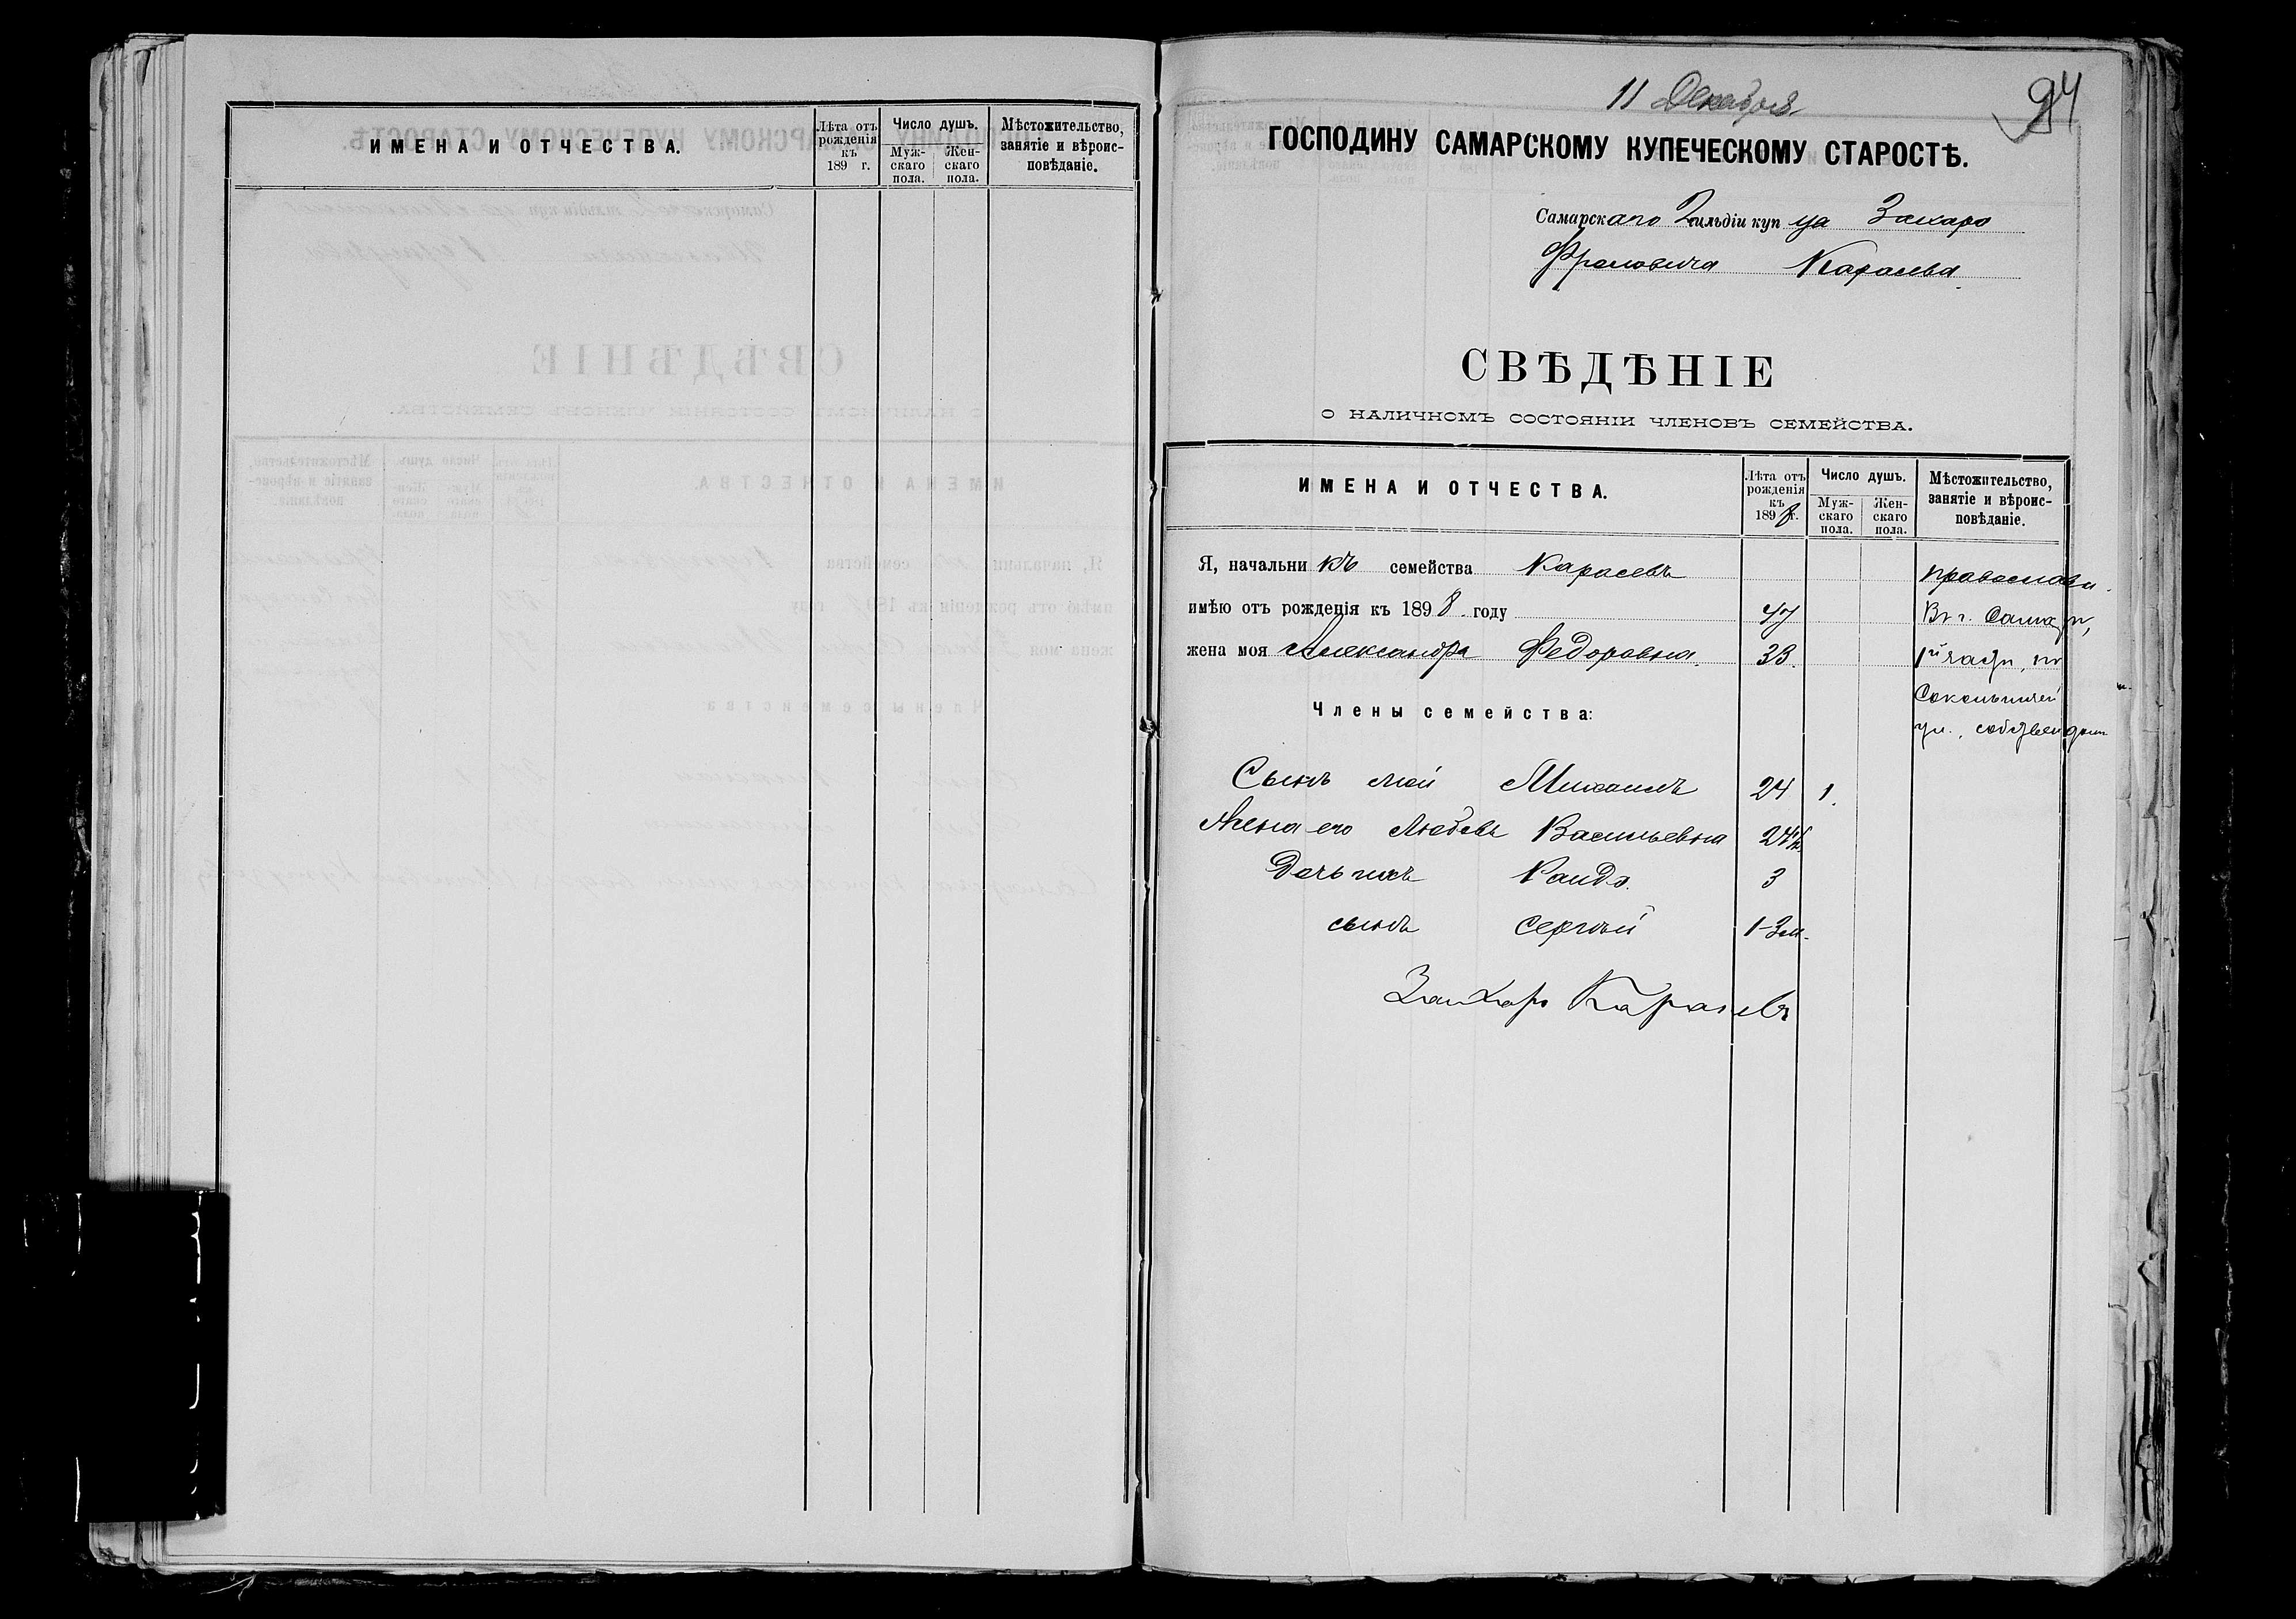 ИМЕНА И ОТЧЕСТВА.
Лѣта отъ рожденія къ 189 г.
Число душъ.
Мужскаго пола.
Женскаго пола.
Мѣстожительство, занятіе и вѣроисповѣданіе.
11 Декабря
94
ГОСПОДИНУ САМАРСКОМУ КУПЕЧЕСКОМУ СТАРОСТѢ.
Самарскаго 2 гильдіи купца Захара
Фроловича Карасева.
СВѢДѢНІЕ
О НАЛИЧНОМЪ СОСТОЯНІИ ЧЛЕНОВЪ СЕМЕЙСТВА.
ИМЕНА И ОТЧЕСТВА.
Лѣта отъ рожденія къ 1898 г.
Число душъ.
Мужскаго пола.
Женскаго пола.
Мѣстожительство, занятіе и вѣроисповѣданіе.
Я, начальникъ семейства Карасевъ православн.
имѣю отъ рожденія къ 1898 году 47 Въ г. Самарѣ,
жена моя Александра Федоровна. 33. 1й части, по
Члены семейства:
ул., собствен дом
Сынъ мой Михаилъ 24 1.
Жена его Любовь Васильевна 24
Дочь ихъ 3
сынъ Сергѣй 1-3 м.
Захаръ Карасевъ